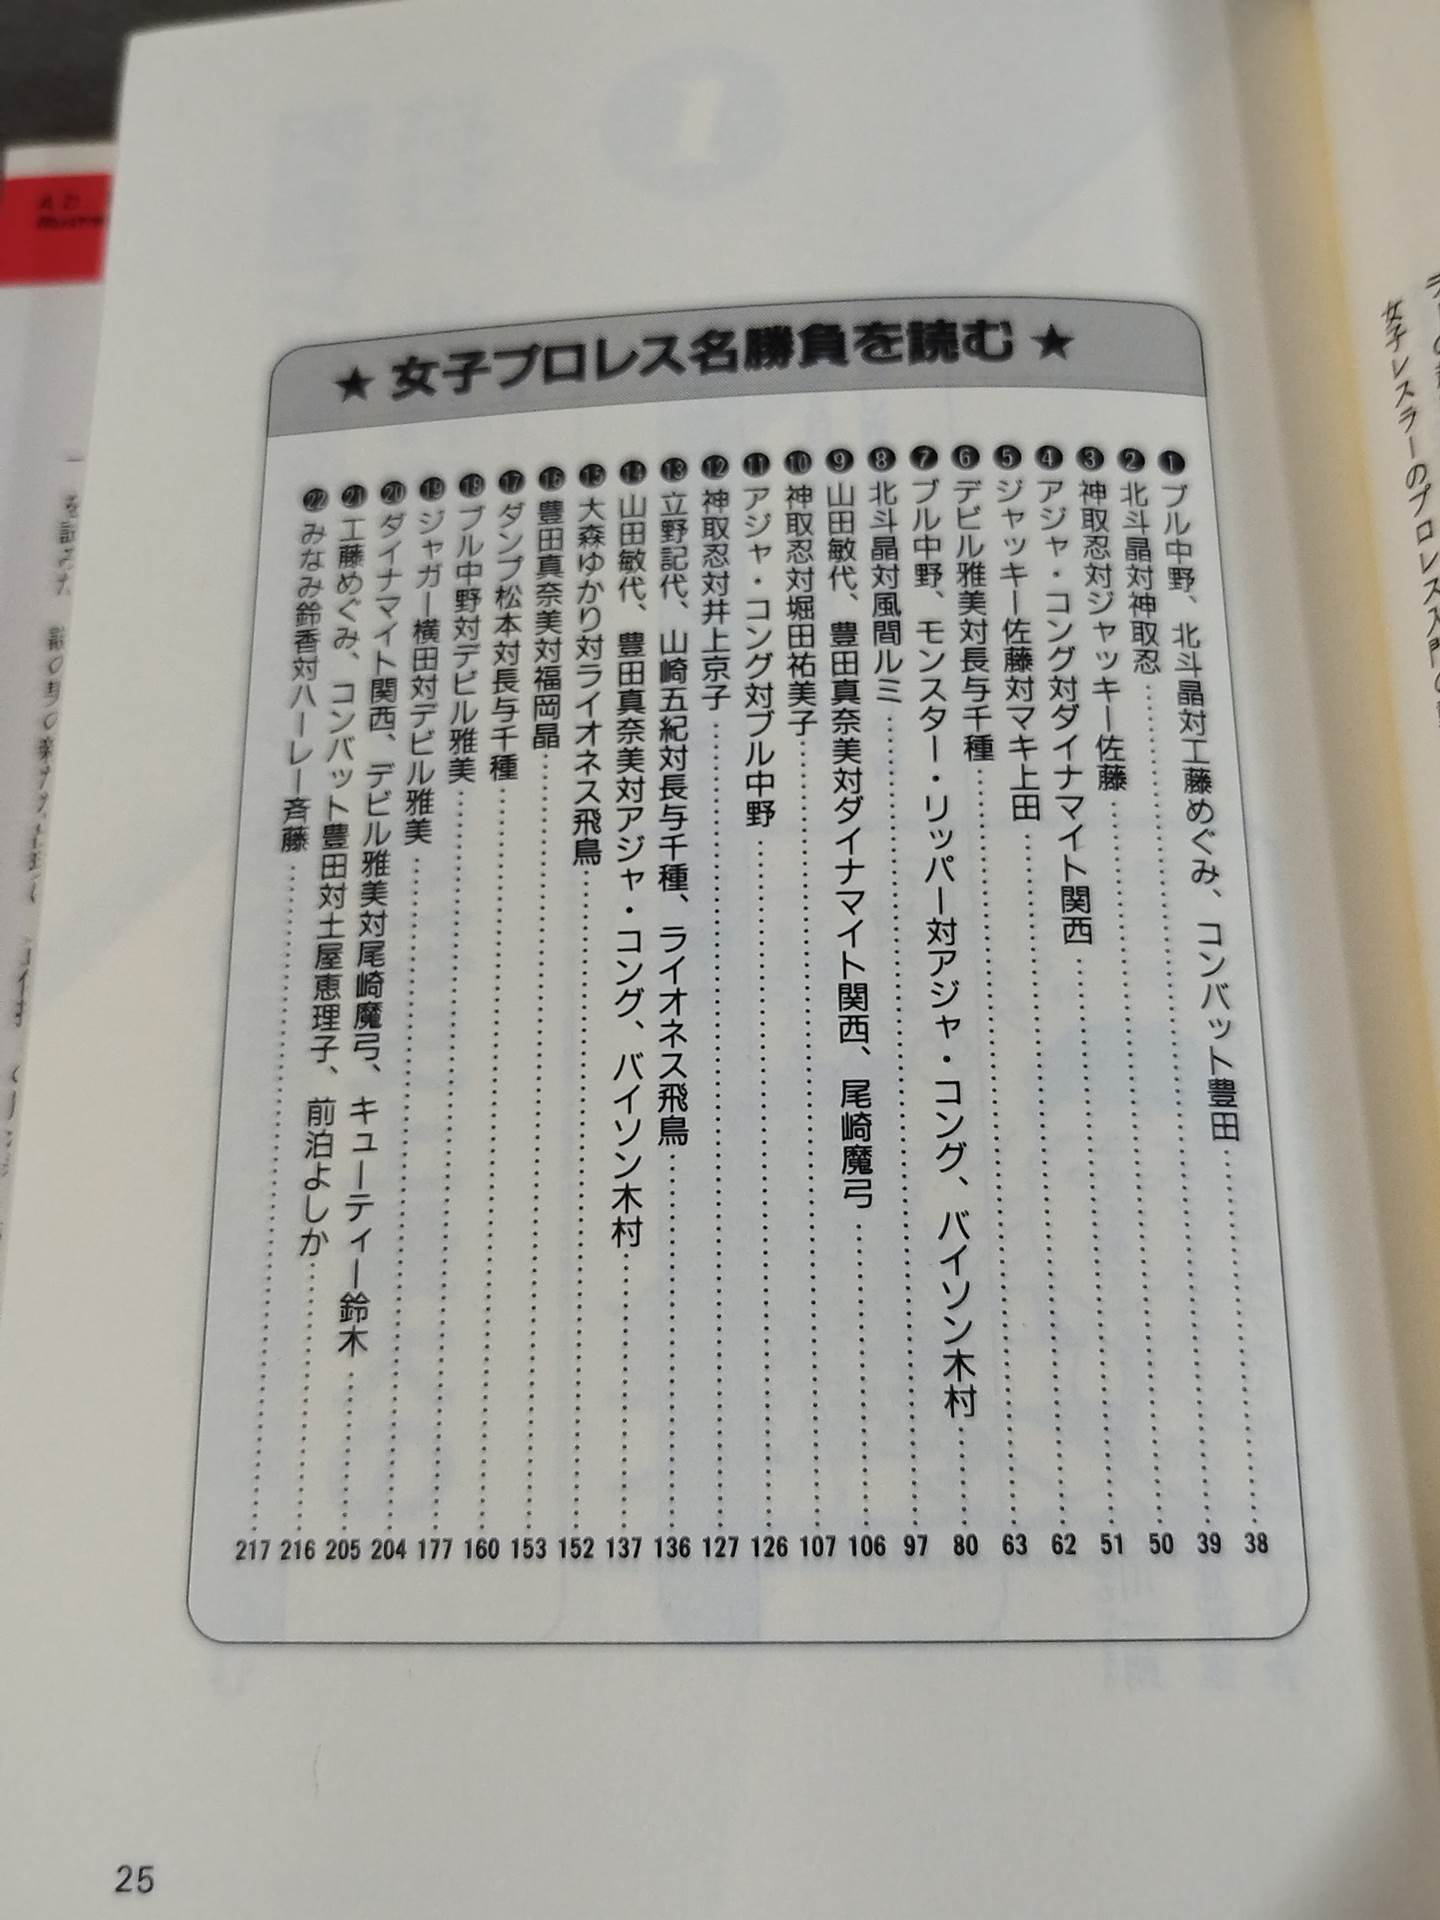 女子レスラーのプロレス入門の
★ 女子プロレス名勝負を読む ★
❶ ブル中野、北斗晶対工藤めぐみ、コンバット豊田……38
❷ 北斗晶対神取忍……39
❸ 神取忍対ジャッキー佐藤……50
❹ アジャ・コング対ダイナマイト関西……51
❺ ジャッキー佐藤対マキ上田……62
❻ デビル雅美対長与千種……63
❼ ブル中野、モンスター・リッパー対アジャ・コング、バイソン木村……80
❽ 北斗晶対風間ルミ……97
❾ 山田敏代、豊田真奈美対ダイナマイト関西、尾崎魔弓……106
❿ 神取忍対堀田祐美子……107
⓫ アジャ・コング対ブル中野……126
⓬ 神取忍対井上京子……127
⓭ 立野記代、山崎五紀対長与千種、ライオネス飛鳥……136
⓮ 山田敏代、豊田真奈美対アジャ・コング、バイソン木村……137
⓯ 大森ゆかり対ライオネス飛鳥……152
⓰ 豊田真奈美対福岡晶……153
⓱ ダンプ松本対長与千種……160
⓲ ブル中野対デビル雅美……177
⓳ ジャガー横田対デビル雅美……204
⓴ ダイナマイト関西、デビル雅美対尾崎魔弓、キューティー鈴木……205
㉑ 工藤めぐみ、コンバット豊田対土屋恵理子、前泊よしか……216
㉒ みなみ鈴香対ハーレー斉藤……217
25